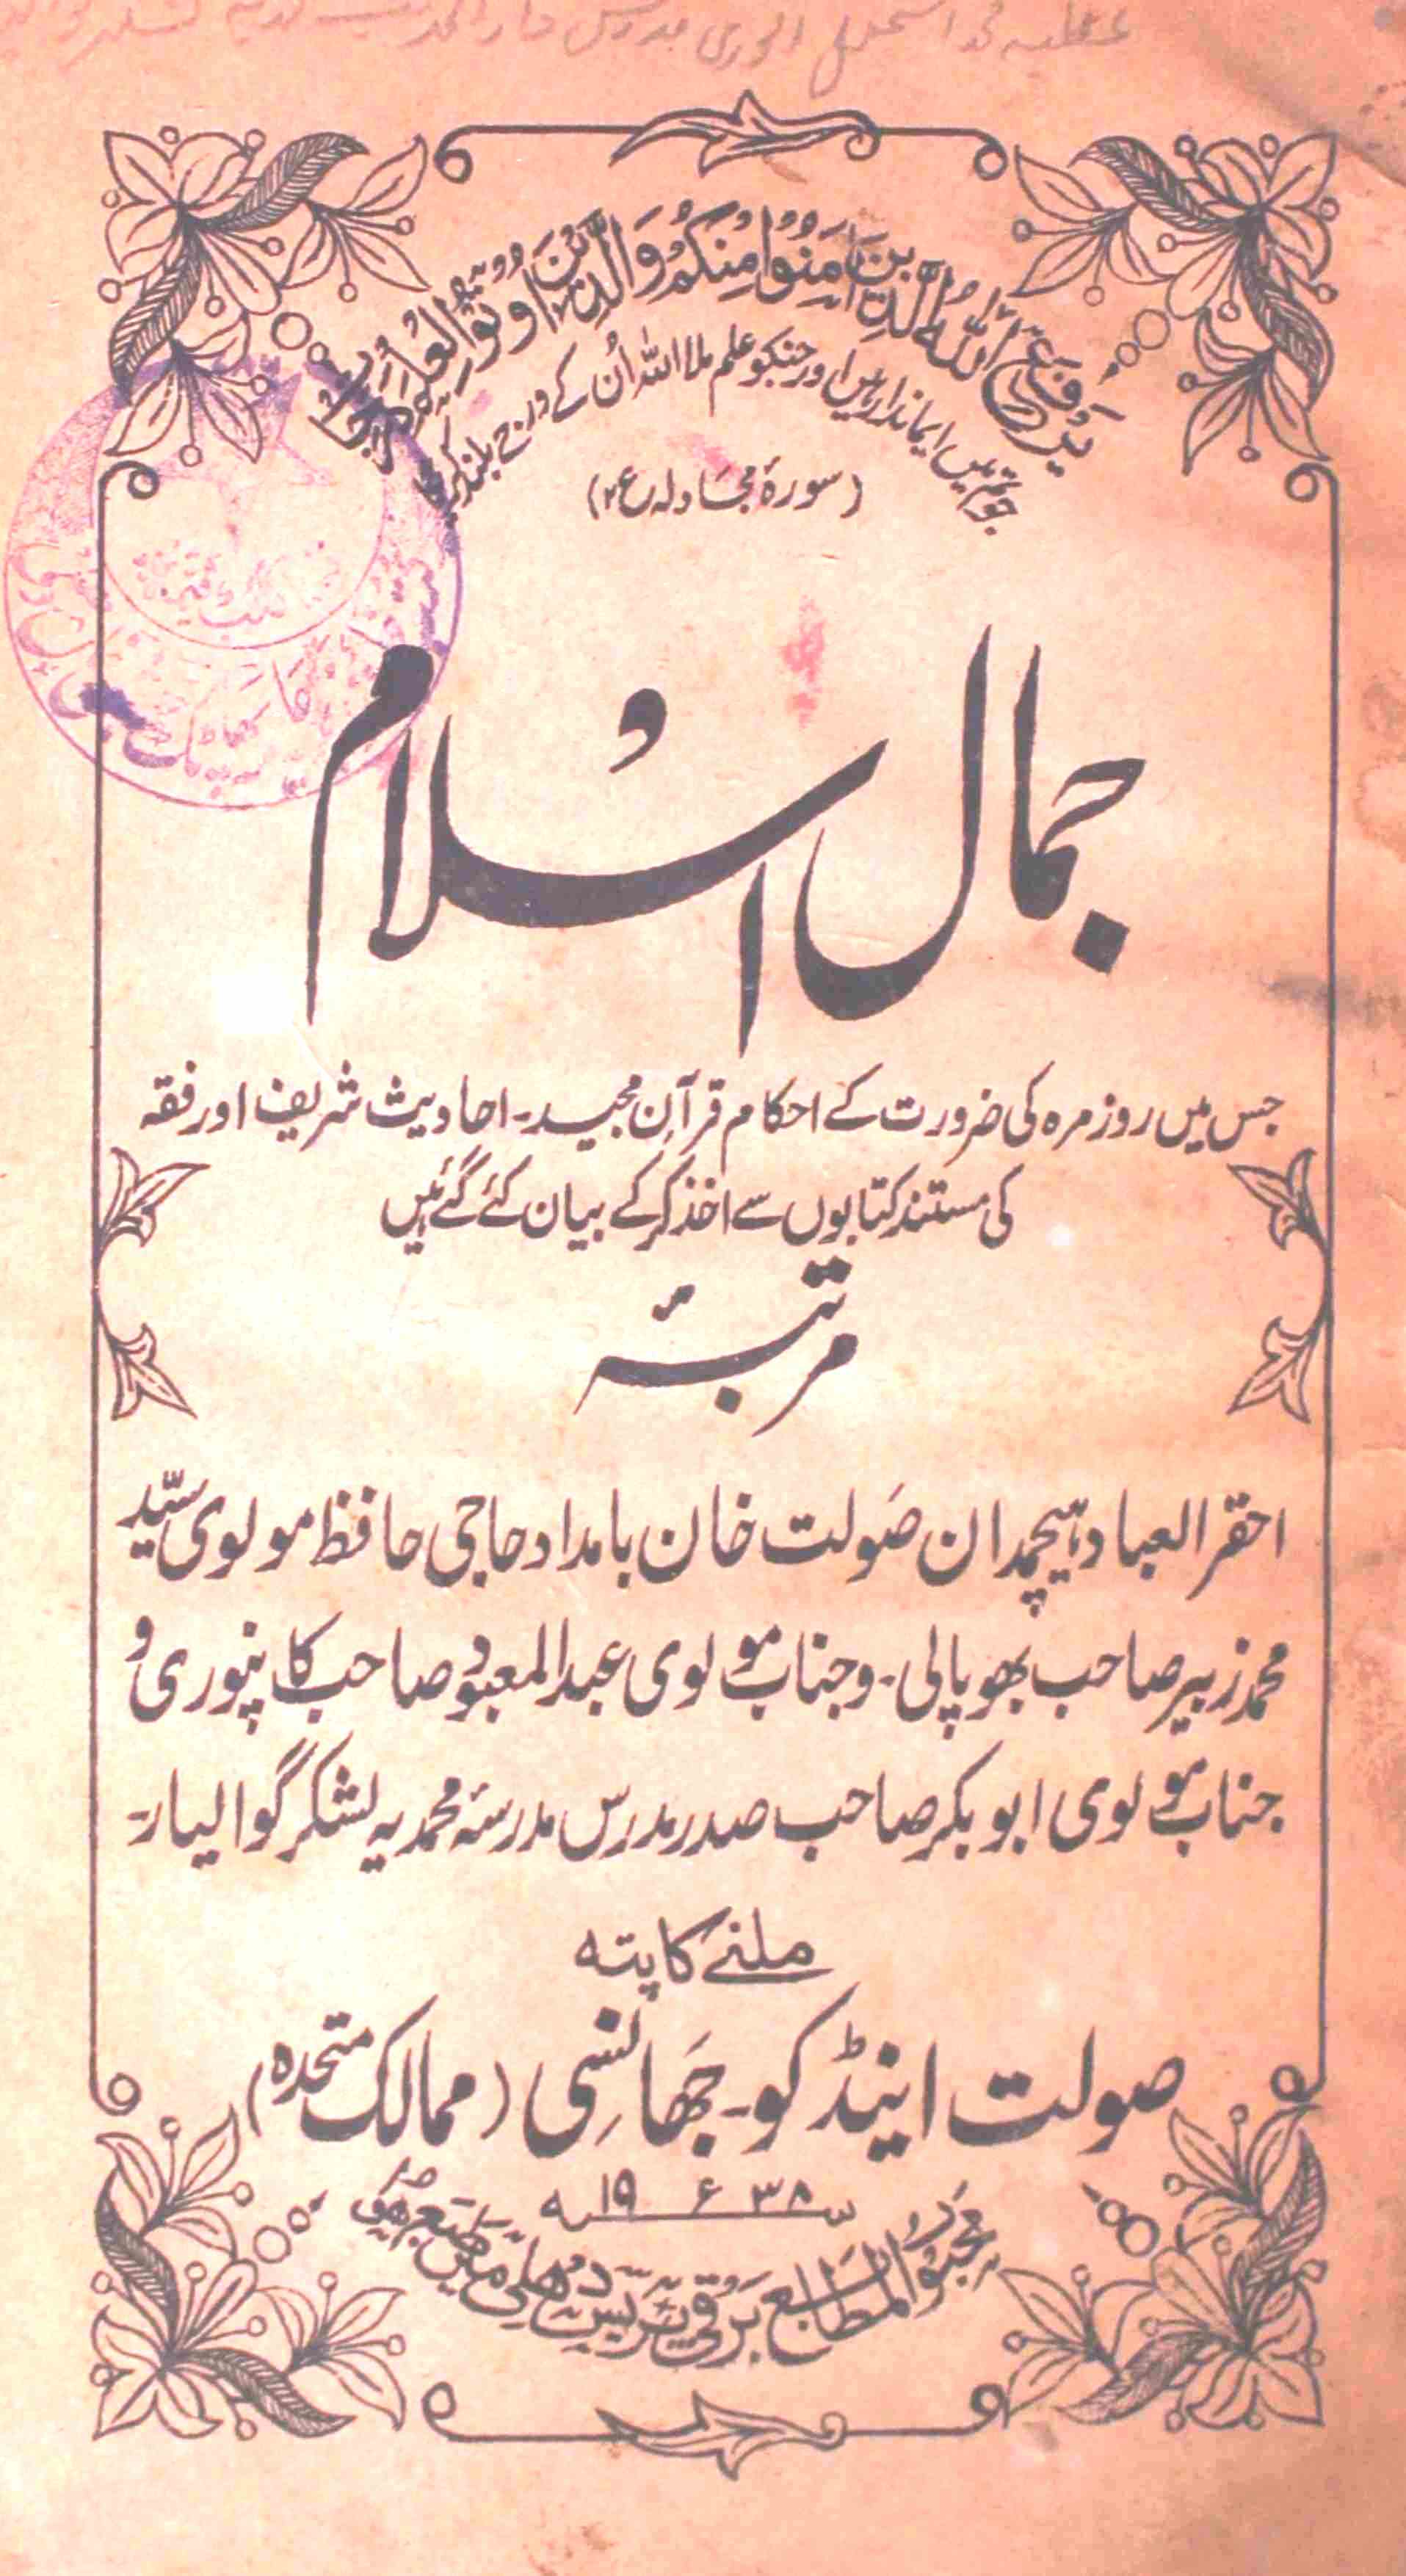 یَرْفَعِ اللّٰهُ الَّذِیْنَ اٰمَنُوْا مِنْكُمْ وَالَّذِیْنَ اُوْتُوا الْعِلْمَ دَرَجَاتٍ
جو تم میں ایماندار ہیں اور جنکو علم ملا اللہ اُن کے درجے بلند کریگا
(سورۂ مجادلہ ع۲)
جمال اسلام
جس میں روزمرہ کی ضرورت کے احکام قرآن مجید۔ احادیث شریف اور فقہ
کی مستند کتابوں سے اخذ کرکے بیان کئے گئے ہیں
مرتبہٗ
احقر العباد ہیچمدان صَولت خان بامداد حاجی حافظ مولوی سیّد
محمد زبیر صاحب بھوپالی۔ وجناب مولوی عبدالمعبود صاحب کانپوری و
جناب مولوی ابوبکر صاحب صدر مدرس مدرسۂ محمدیہ لشکر گوالیار۔
ملنے کا پتہ
صولت اینڈ کو۔ جھانسی (ممالک متحدہ)
سنہ ۱۹۳۸ء
محبوب المطابع برقی پریس دھلی میں طبع ہوئی